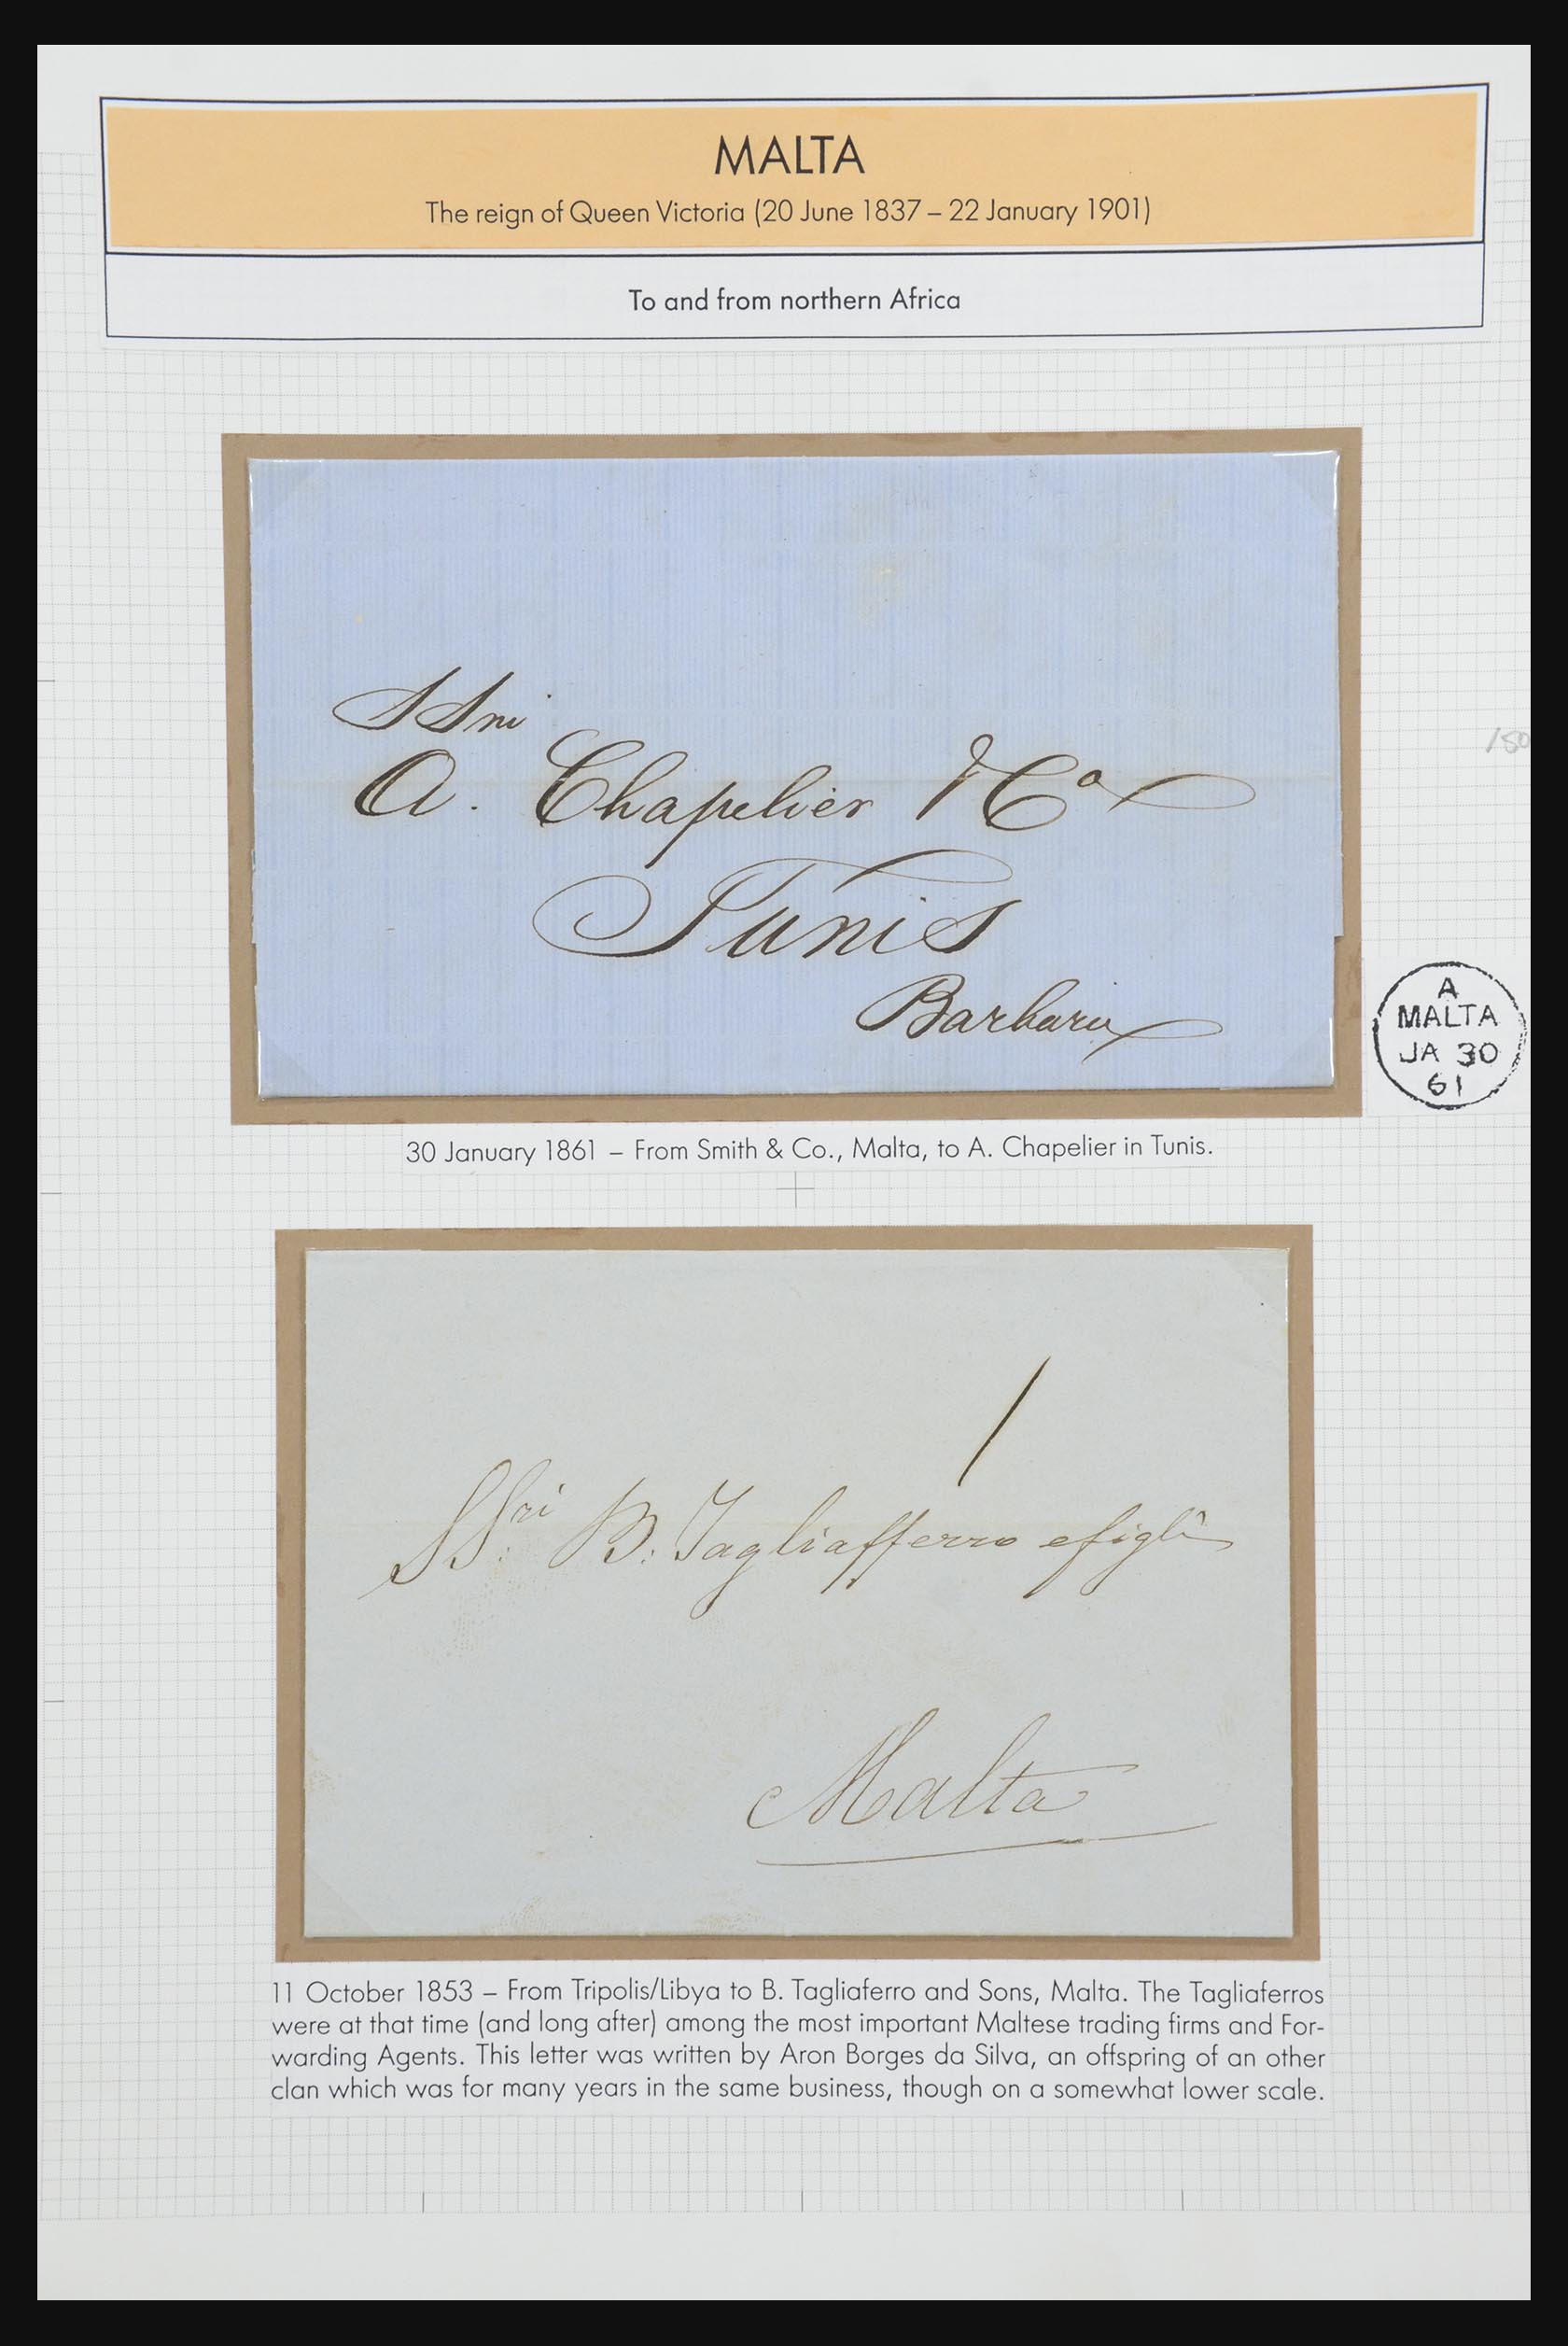 MALTA
The reign of Queen Victoria (20 June 1837 – 22 January 1901)
To and from northern Africa
SSni
A. Chapelier & Co
Tunis
Barbaria
/50
A
MALTA
JA 30
61
30 January 1861 – From Smith & Co., Malta, to A. Chapelier in Tunis.
1
SSri B: Tagliafferro e figli
Malta
11 October 1853 – From Tripolis/Libya to B. Tagliaferro and Sons, Malta. The Tagliaferros
were at that time (and long after) among the most important Maltese trading firms and For-
warding Agents. This letter was written by Aron Borges da Silva, an offspring of an other
clan which was for many years in the same business, though on a somewhat lower scale.